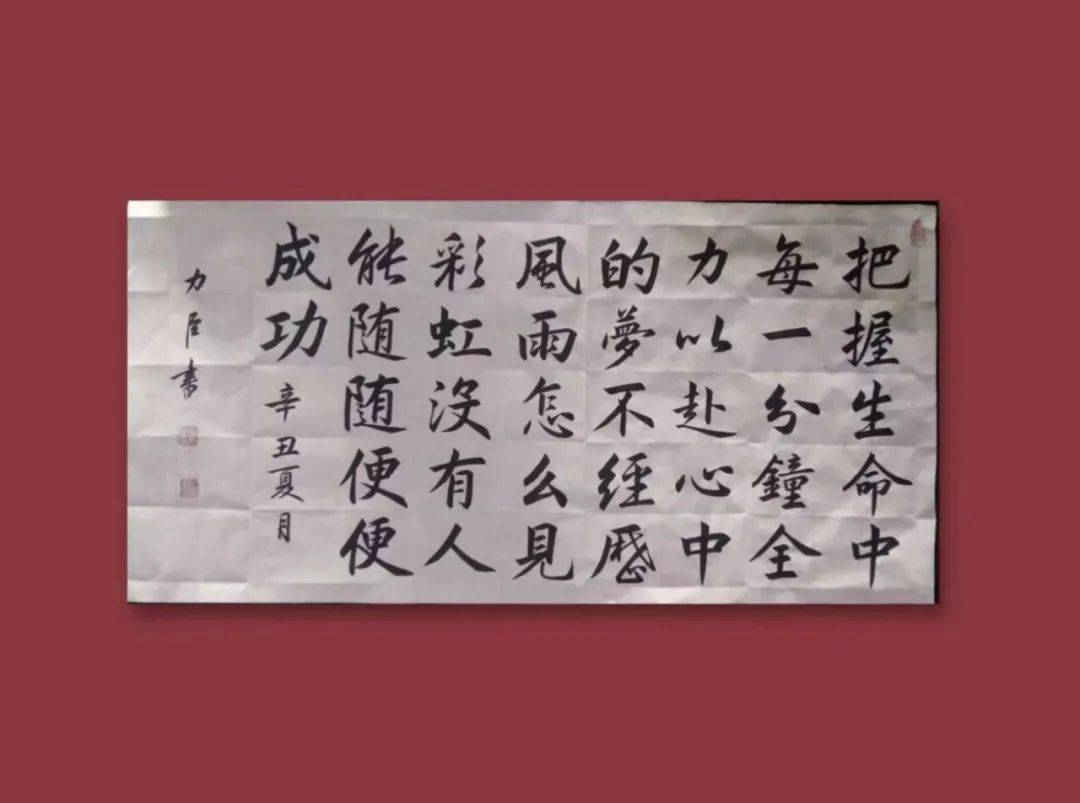 把握生命中
每一分鐘全
力以赴心中
的夢不經歷
風雨怎么見
彩虹没有人
能随随便便
成功
辛丑夏月
力
書